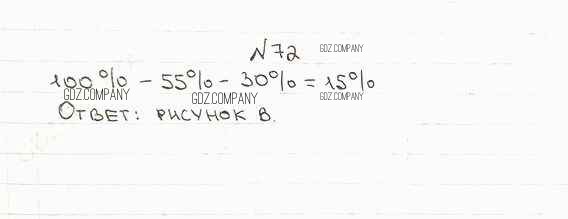 №72 GDZ.COMPANY
100% - 55% - 30% = 15%
GDZ.COMPANY GDZ.COMPANY GDZ.COMPANY
Ответ: рисунок В.